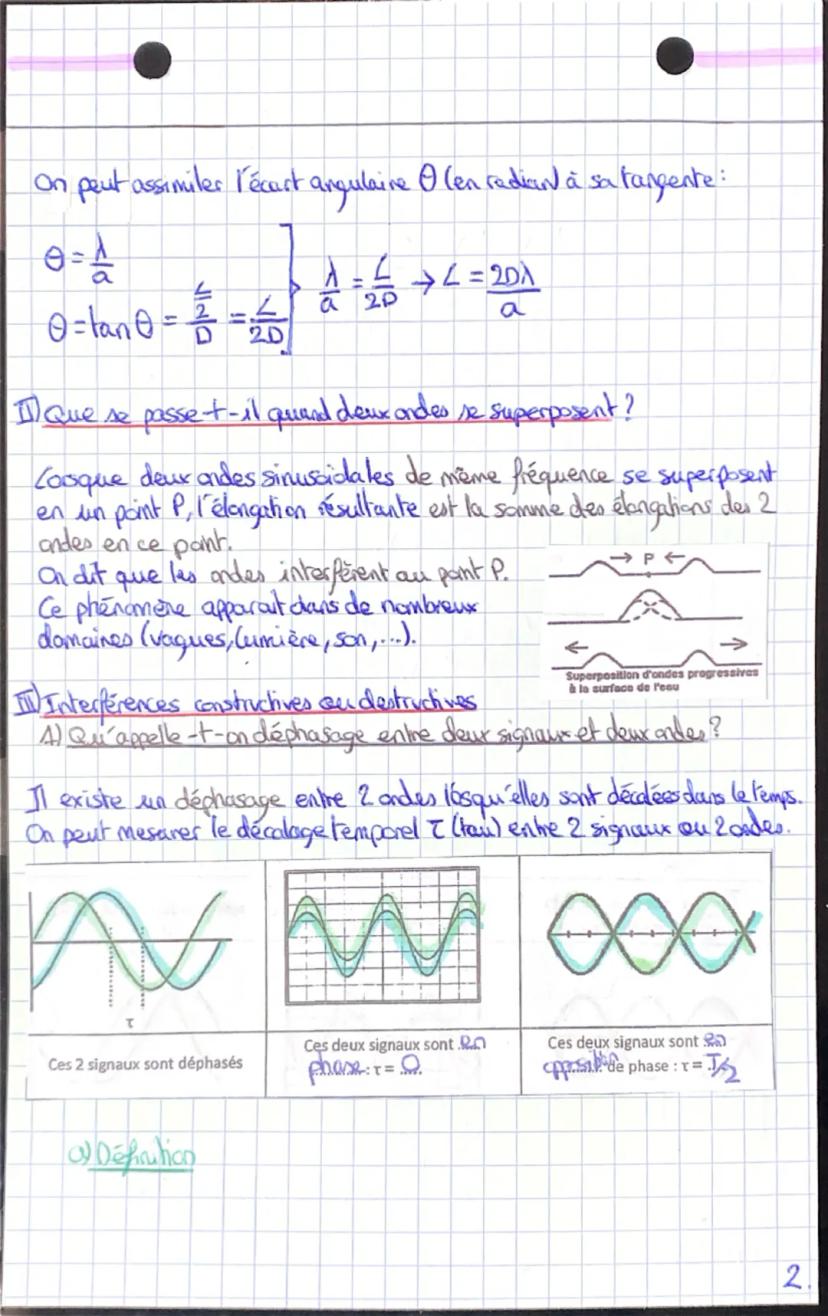 On peut assimiler l'écart angulaire θ (en radian) à sa tangente :
θ = λ/a
θ = tan θ = (L/2)/D = L/2D
λ/a = L/2D → L = 2Dλ/a
II) Que se passe-t-il quand deux ondes se superposent ?
Lorsque deux ondes sinusoïdales de même fréquence se superposent
en un point P, l'élongation résultante est la somme des élongations des 2
ondes en ce point.
On dit que les ondes interfèrent au point P.
Ce phénomène apparait dans de nombreux
domaines (vagues, lumière, son, ...).
→ P ←
← →
Superposition d'ondes progressives
à la surface de l'eau
III) Interférences constructives ou destructives
1) Qu'appelle-t-on déphasage entre deux signaux et deux ondes ?
Il existe un déphasage entre 2 ondes lorsqu'elles sont décalées dans le temps.
On peut mesurer le décalage temporel τ (tau) entre 2 signaux ou 2 ondes.
τ
Ces 2 signaux sont déphasés
Ces deux signaux sont en
phase : τ = 0
Ces deux signaux sont en
opposition de phase : τ = T/2
a) Définition
2.